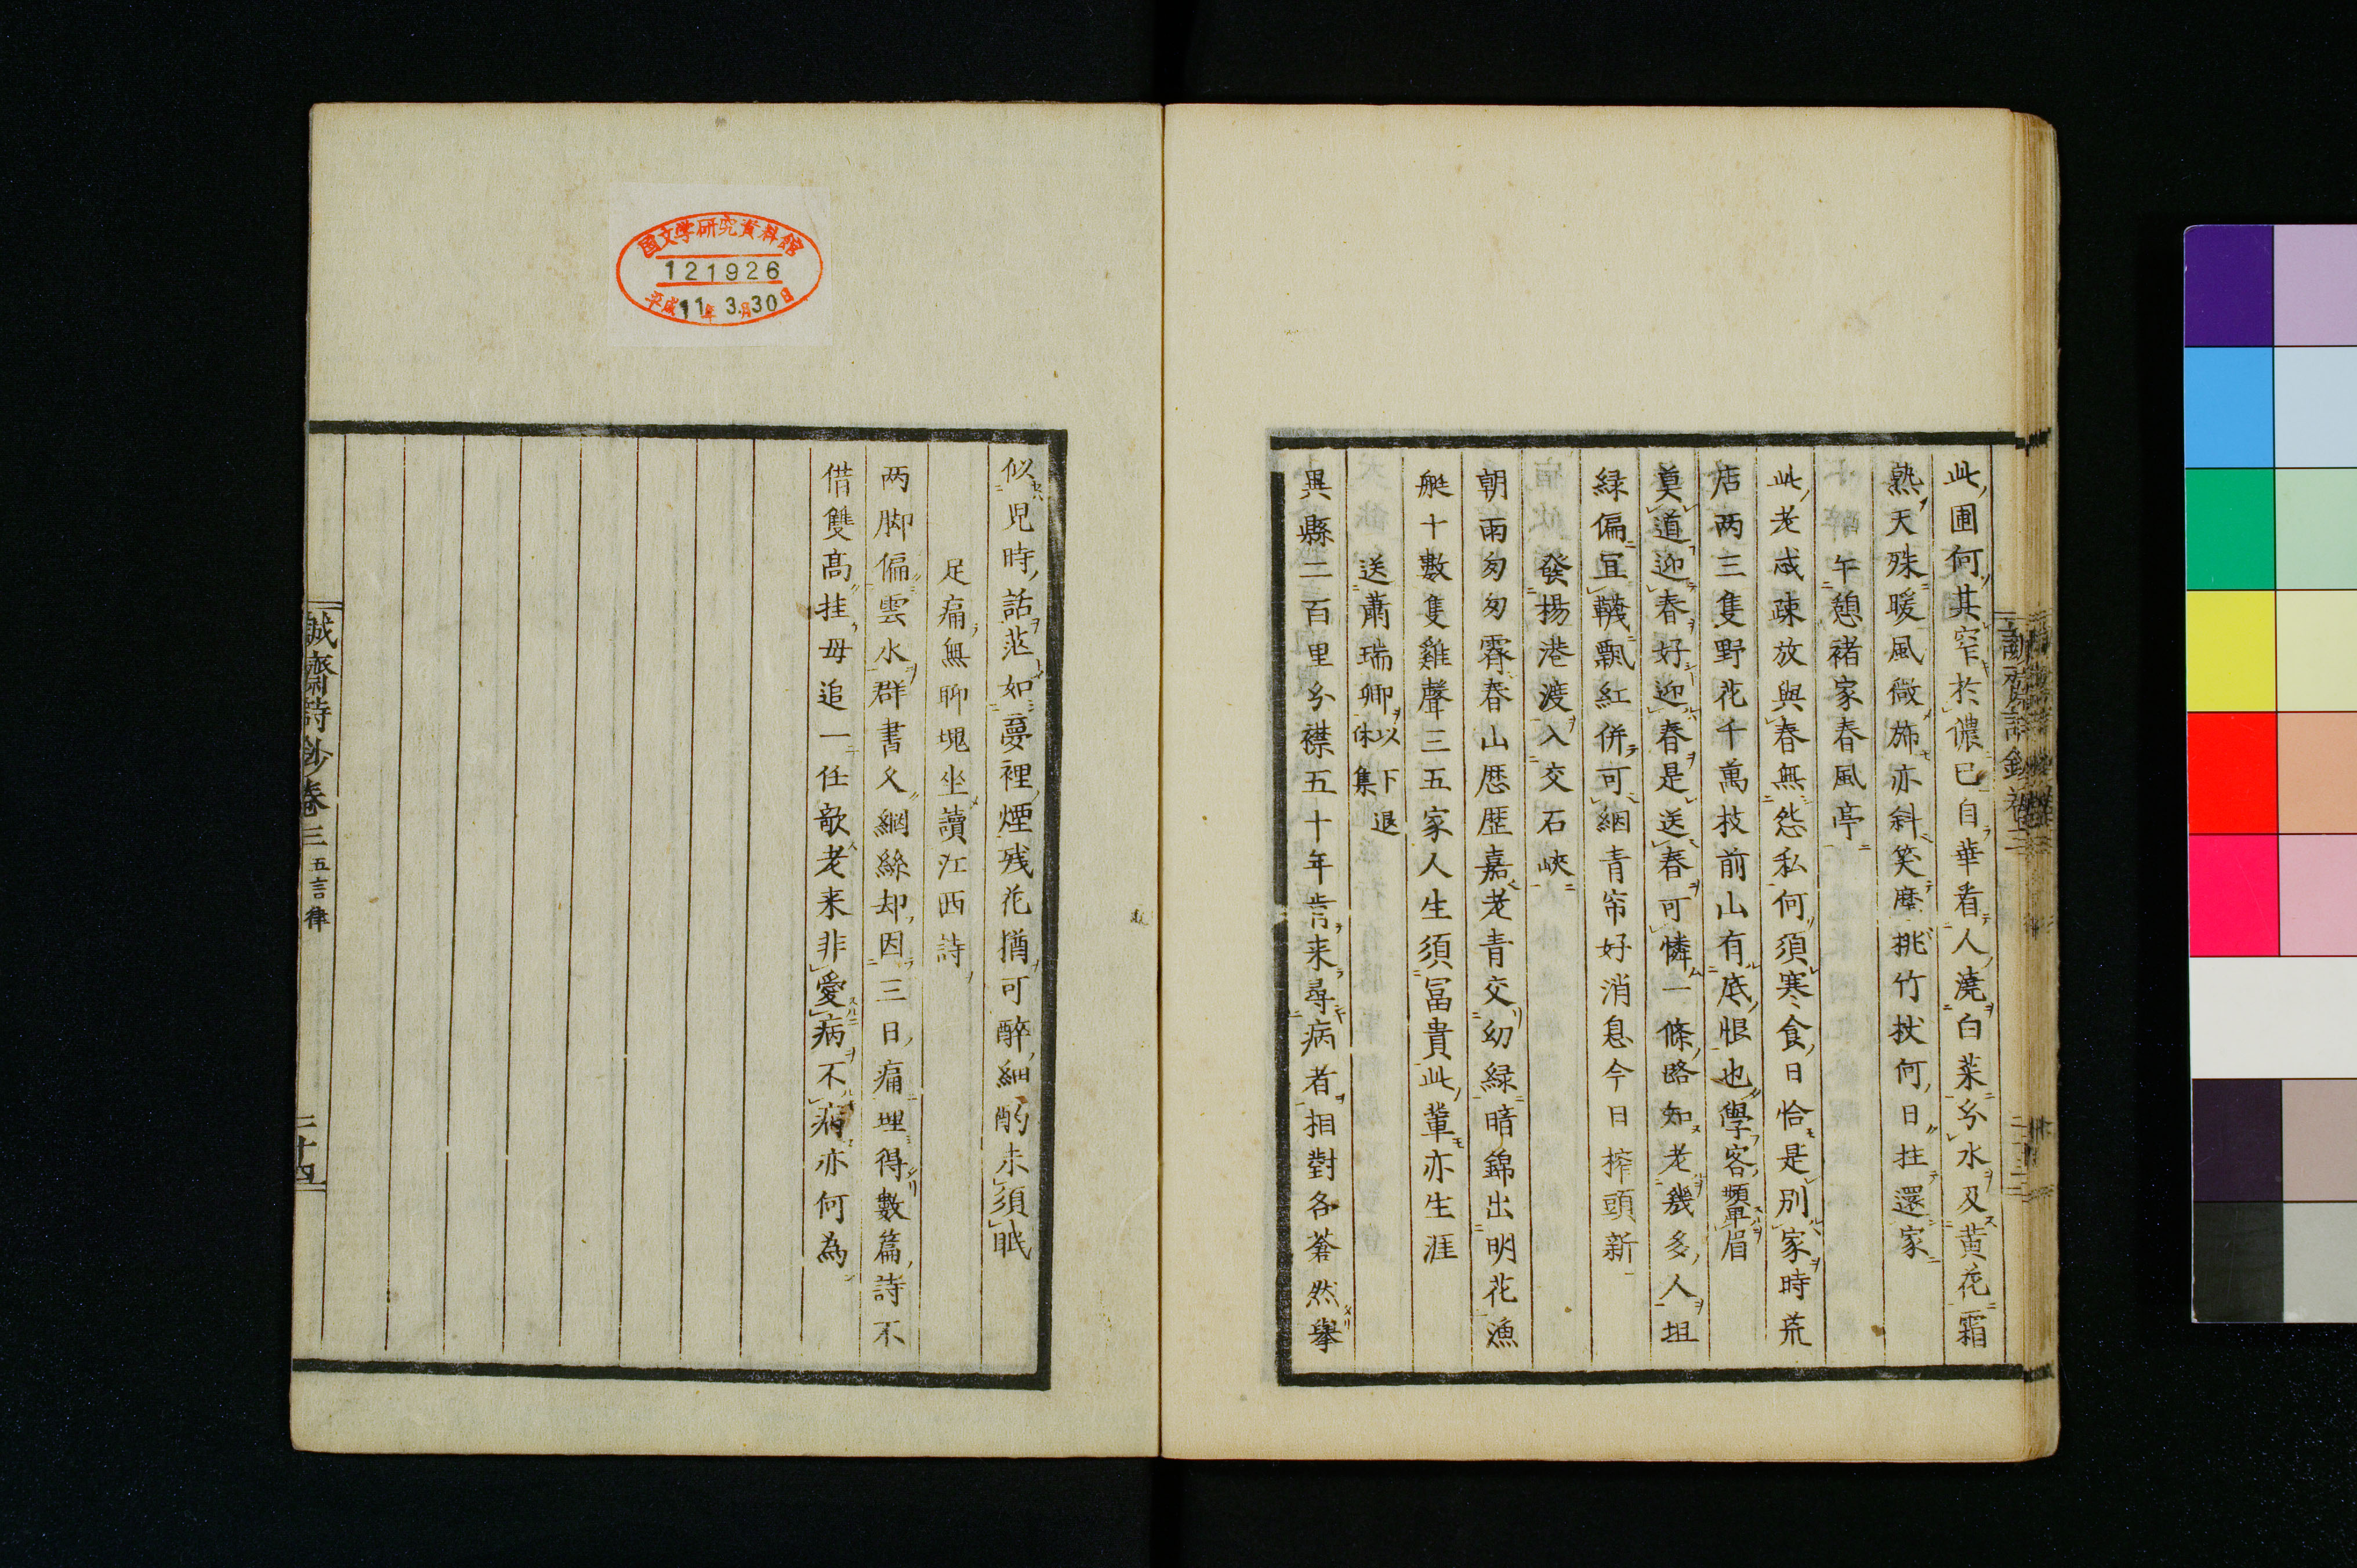 此圃何其窄於儂已自華看人澆白菜分水及黄花霜
熟天殊暖風微旆亦斜笑摩挑竹杖何日拄還家
午憩褚家春風亭
此老咸疎放與春無怨私何須寒食日恰是別家時荒
店两三隻野花千萬技前山有底恨也學客顰眉
莫道迎春好迎春是送春可憐一條路知老幾多人坦
緑偏宜襪飄紅併可絪青帘好消息今日搾頭新
發楊港渡入交石峽
朝雨匆匆霽春山歴歴嘉老青交幼緑暗錦出明花漁
艇十數隻雞聲三五家人生須冨貴此輩亦生涯
送蕭瑞卿以下退休集
異縣二百里分襟五十年肯来尋病者相對各蒼然擧
似児時話茫如夢裡煙残花猶可醉細酌未須眠
足痛無聊塊坐讀江西詩
两脚偏雲水群書久網絲却因三日痛埋得數篇詩不
借雙髙挂毋追一任欹老来非愛病不病亦何為
誠齋詩鈔巻三 五言律
二十四
国文学研究資料館
121926
平成11年3月30日